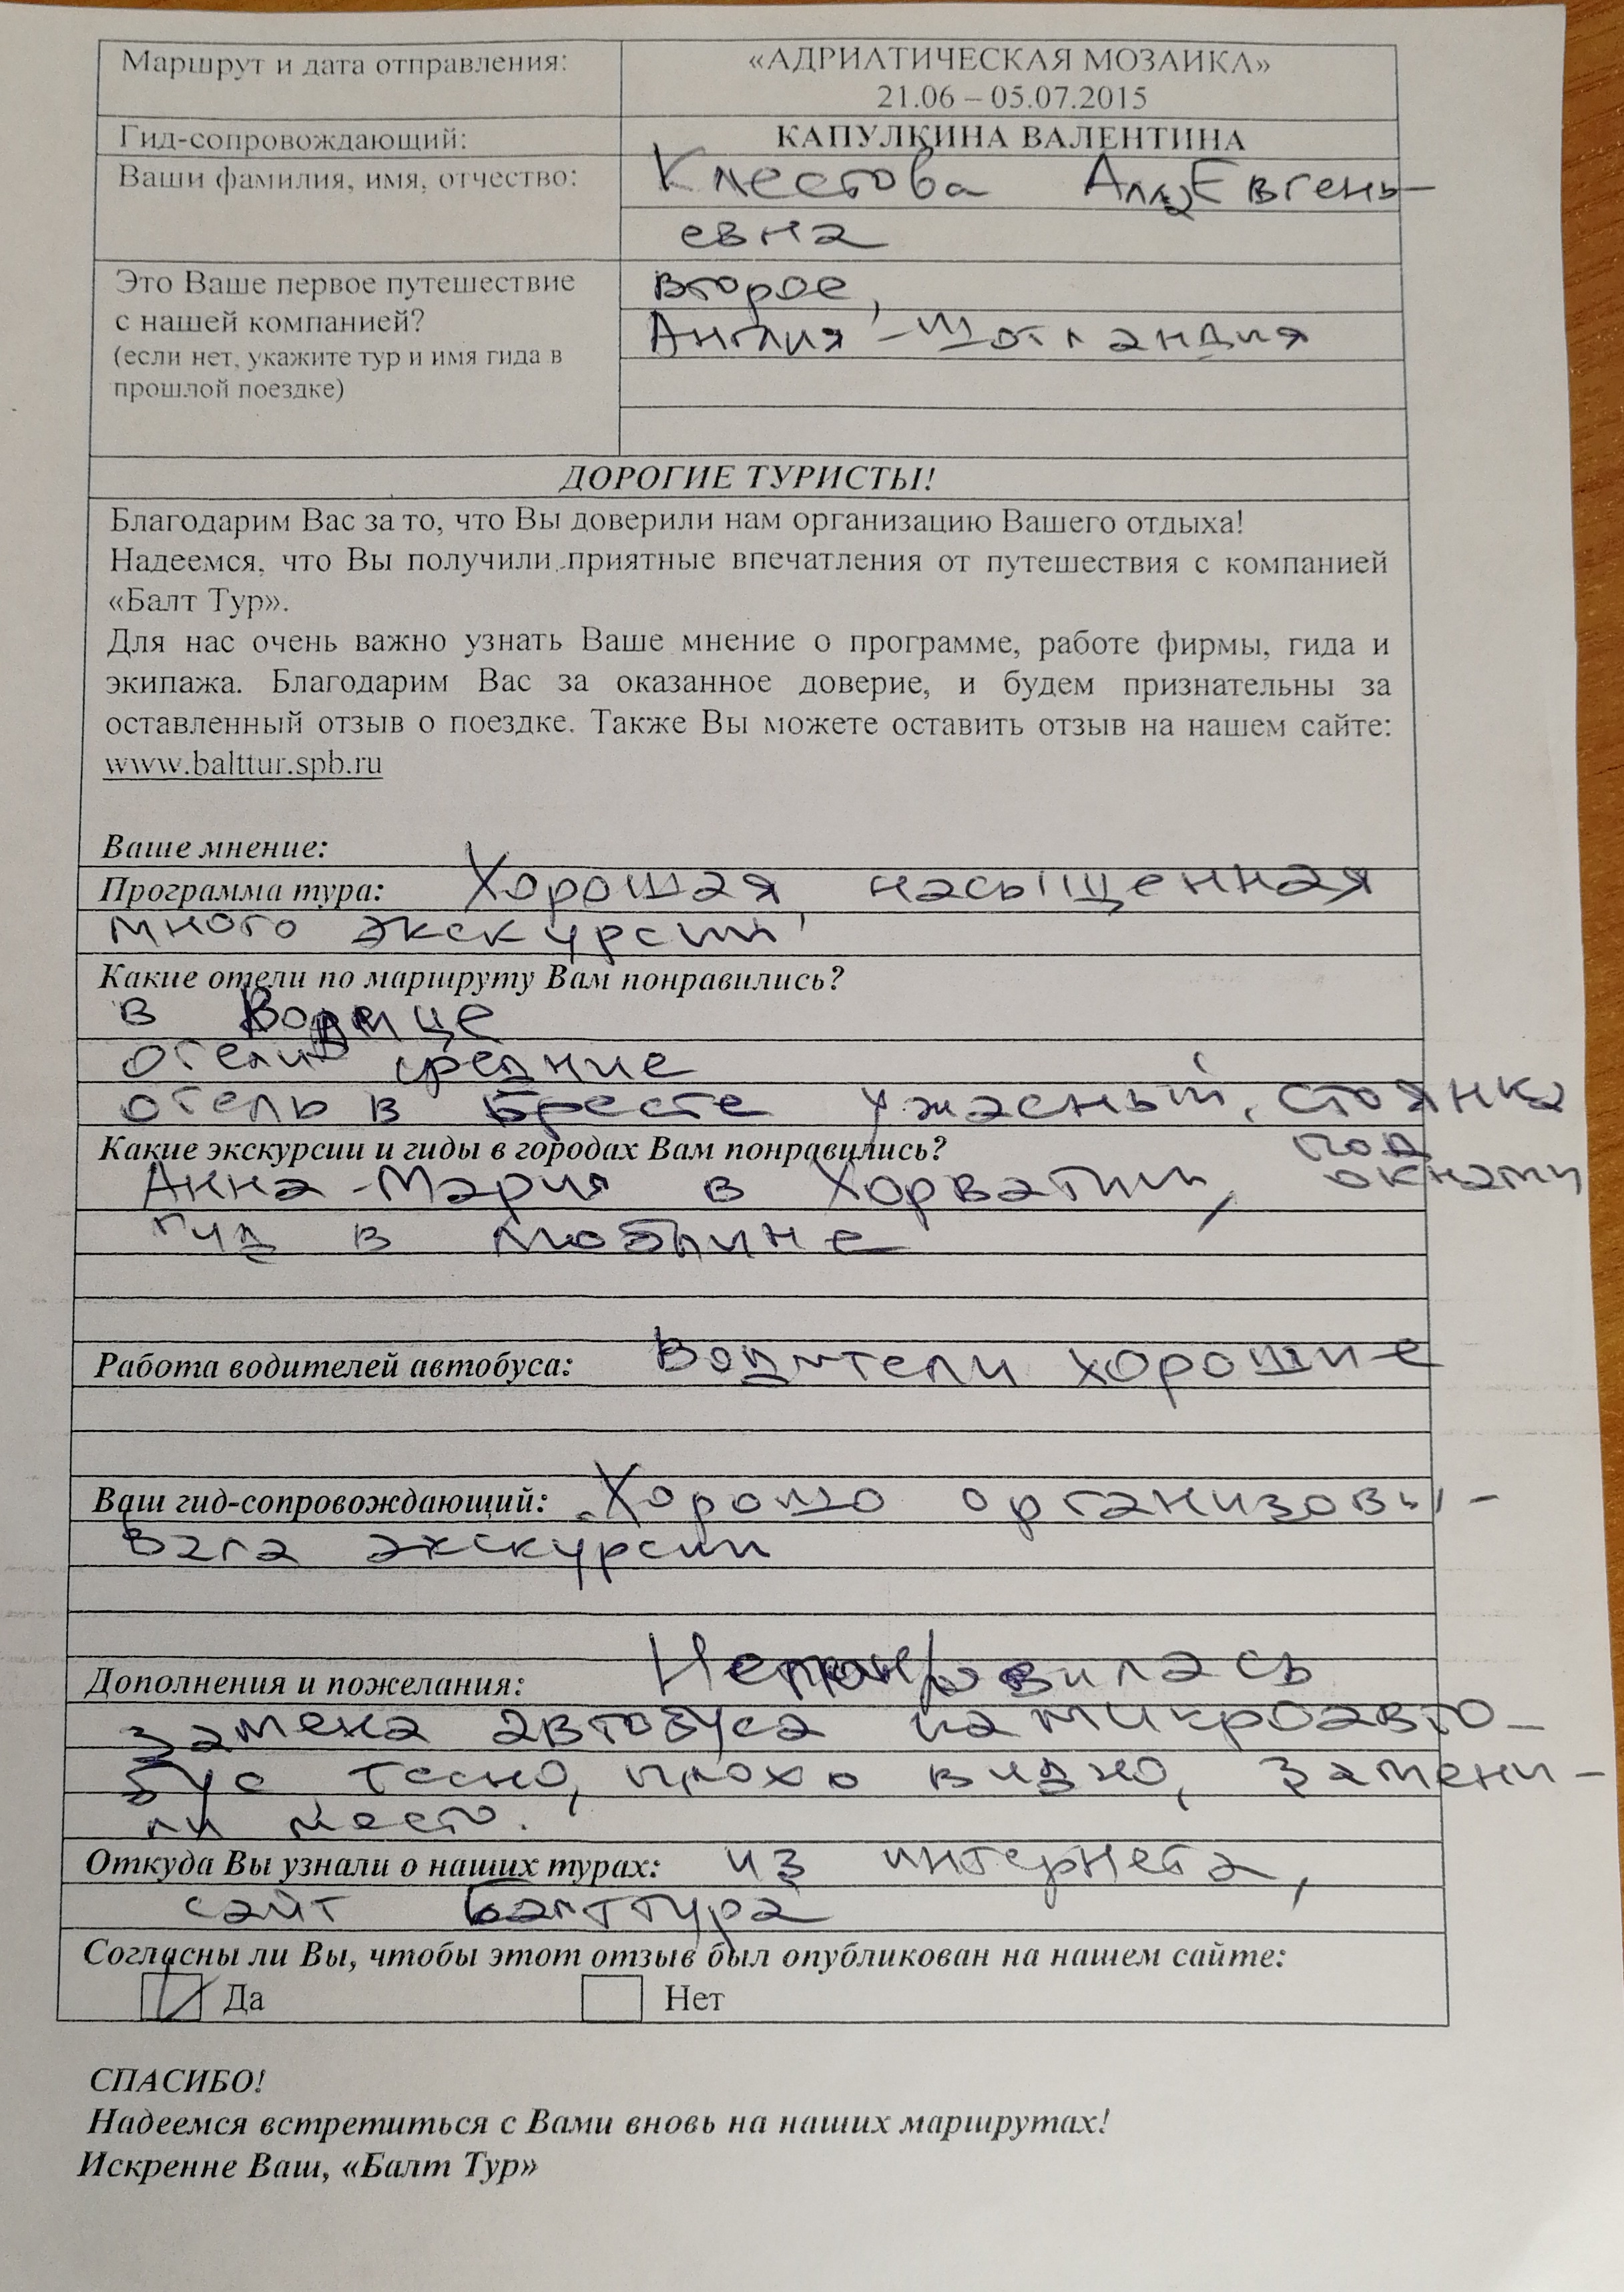 Маршрут и дата отправления:
«АДРИАТИЧЕСКАЯ МОЗАИКА»
21.06 – 05.07.2015
Гид-сопровождающий:
КАПУЛКИНА ВАЛЕНТИНА
Ваши фамилия, имя, отчество:
Клестова Алла Евгень-
евна
Это Ваше первое путешествие
с нашей компанией?
(если нет, укажите тур и имя гида в
прошлой поездке)
второе,
Англия - Шотландия
ДОРОГИЕ ТУРИСТЫ!
Благодарим Вас за то, что Вы доверили нам организацию Вашего отдыха!
Надеемся, что Вы получили приятные впечатления от путешествия с компанией
«Балт Тур».
Для нас очень важно узнать Ваше мнение о программе, работе фирмы, гида и
экипажа. Благодарим Вас за оказанное доверие, и будем признательны за
оставленный отзыв о поездке. Также Вы можете оставить отзыв на нашем сайте:
www.balttur.spb.ru
Ваше мнение:
Программа тура: Хорошая, насыщенная
много экскурсий
Какие отели по маршруту Вам понравились?
в Водице
отели средние
отель в Бресте ужасный, стоянка
под
окнами
Какие экскурсии и гиды в городах Вам понравились?
Анна-Мария в Хорватии,
гид в Любляне
Работа водителей автобуса: Водители хорошие
Ваш гид-сопровождающий: Хорошо организовы-
вала экскурсии
Дополнения и пожелания: Не понравилась
замена автобуса на микроавто-
бус тесно, плохо видно, замени-
ли место.
Откуда Вы узнали о наших турах: из интернета,
сайт Балттура
Согласны ли Вы, чтобы этот отзыв был опубликован на нашем сайте:
Да Нет
СПАСИБО!
Надеемся встретиться с Вами вновь на наших маршрутах!
Искренне Ваш, «Балт Тур»